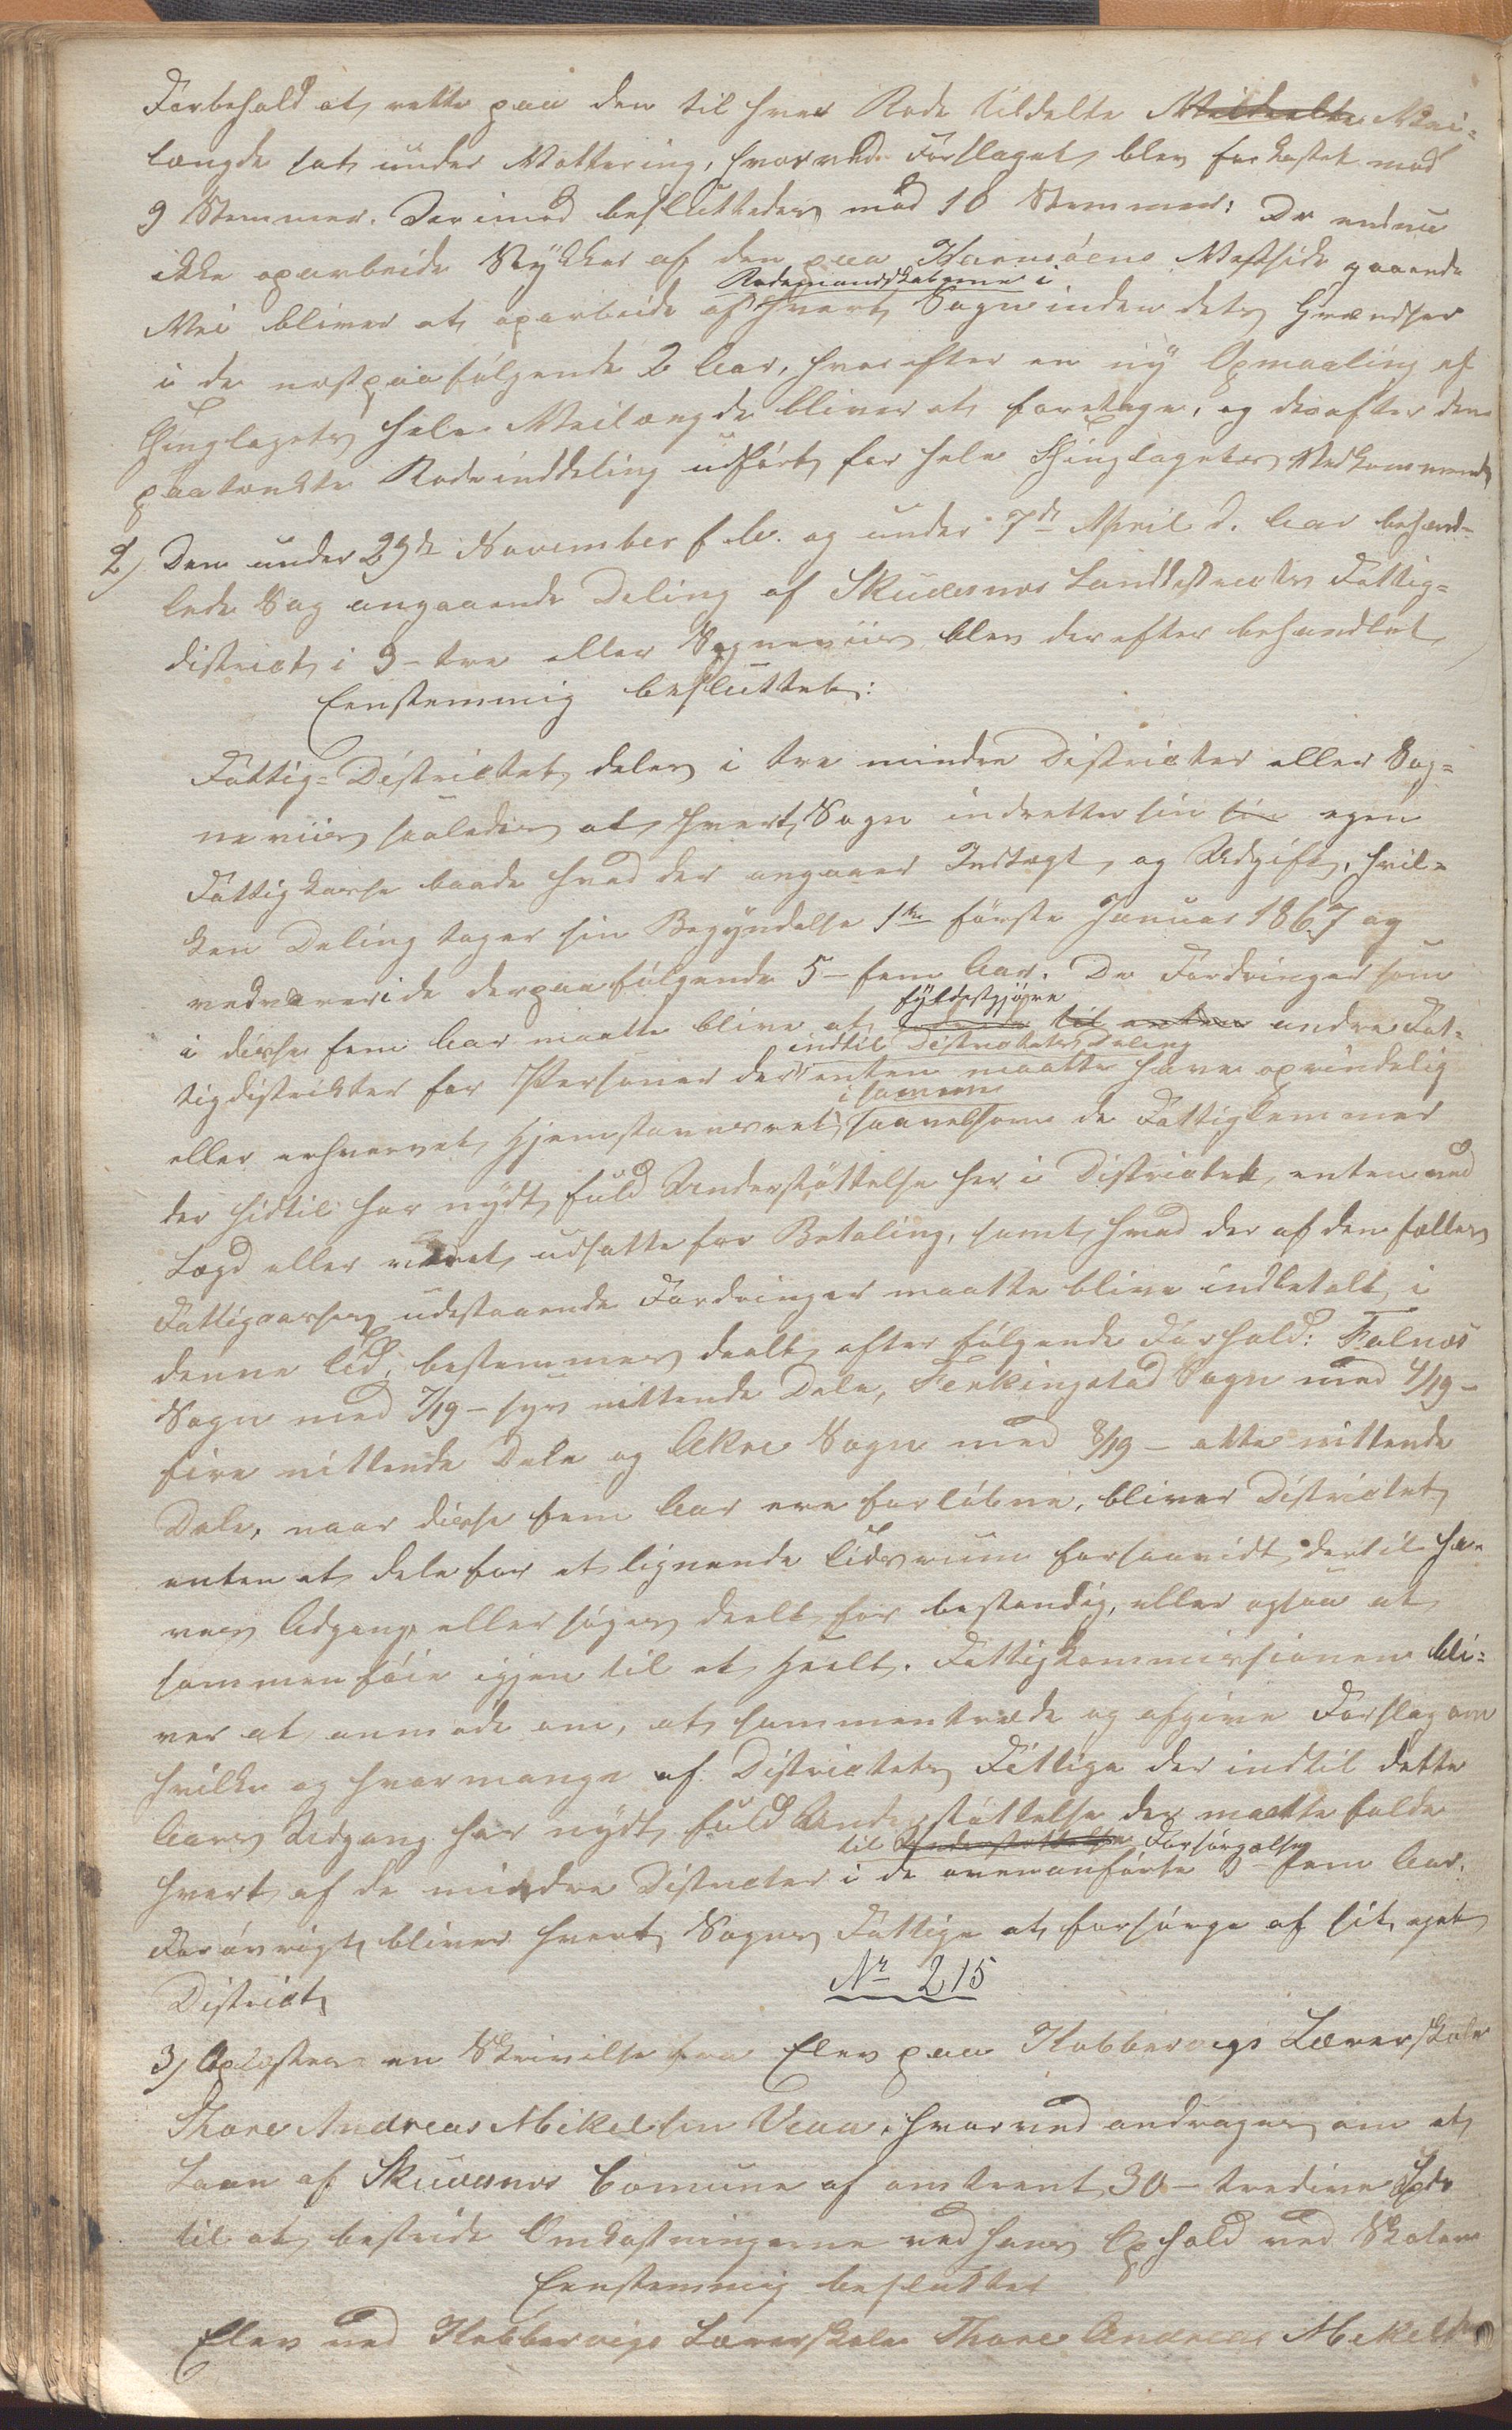 Forbehold at rette paa den til hver Rode tildelte Vei-
længde sat under Vottering, hvorved Forslaget blev forkastet med
9 Stemmer. Derimod besluttedes med 10 Stemmer: De endnu
ikke oparbeide Stykker af den paa Karmöens Vestside gaaende
Rodemandskaberne i
Vei bliver at oparbeide af hvert Sogn inden dets Grændser
i de nestpaafølgende 2 Aar, hvorefter en ny Opmaaling af
Thinglagets hele Veilængde bliver at foretage, og derefter den
paatænkte Rodeinddeling udført for hele Thinglagets Vedkommende
2) Den under 29de November f. A. og under 7de April d. Aar behand-
lede Sag angaaende Deling af Skudesnæs Landdistricts Fattig-
district i 3 - tre eller Sogneviis blev derefter behandlet
Eenstemmig besluttet:
Fattig-Districtet deles i tre mindre Districter eller Sog-
neviis saaledes at hvert Sogn indretter sin sin egen
Fattigkasse baade hvad der angaaer Indtægt og Udgift, hvil-
ken Deling tager sin Begyndelse 1ste første Januar 1867 og
vedvarer i de derpaafølgende 5 - fem Aar. De Fordringer som
fyldestgjøre
i disse fem Aar maatte blive at til enten andre Fat-
indtil Districtets Deling
tigdistrikter for Personer der enten maatte have oprindelig
i samme
eller erhvervet Hjemstavnsret saavelsom de Fattiglemmer
der hidtil har nydt fuld Understøttelse her i Districtet, enten ved
Lægd eller været udsatte for Betaling, samt hvad der af den fælles
Fattigcasses udestaaende Fordringer maatte blive indbetalt i
denne Tid, bestemmes deelt efter følgende Forhold: Falnæs
Sogn med 7/19 - syv nittende Dele, Ferkingstad Sogn med 4/19 -
fire nittende Dele og Akre Sogn med 8/19 - otte nittende
Dele, naar disse fem Aar ere forløbne, bliver Districtet
enten at dele for et lignende Tidsrum forsaavidt dertil ha-
ves Adgang, eller søges deelt for bestandig, eller ogsaa at
sammenføie igjen til et Heelt. Fattigkommissionen bli-
ver at anmode om, at sammentræde og afgive Forslag om
hvilke og hvormange af Districtets Fattige der indtil dette
Aars Udgang har nydt fuld Understøttelse der maatte falde
til Understøttelse Forsørgelse
hvert af de mindre Districter i de ovenanførte 5 - fem Aar.
Forøvrigt bliver hvert Sogns Fattige at forsørge af sit eget
District
No 215
3) Oplæstes en Skrivelse fra Elev paa Kobbervigs Lærerskole
Thore Andreas Mikelsen Veaa, hvorved andrages om et
Laan af Skudesnæs Comune af omtrent 30 - tredive Spd
til at bestride Omkostningerne ved hans Ophold ved Skolen
Eenstemmig besluttet
Elev ved Kobbervigs Lærerskole Thore Andreas Mekelsen